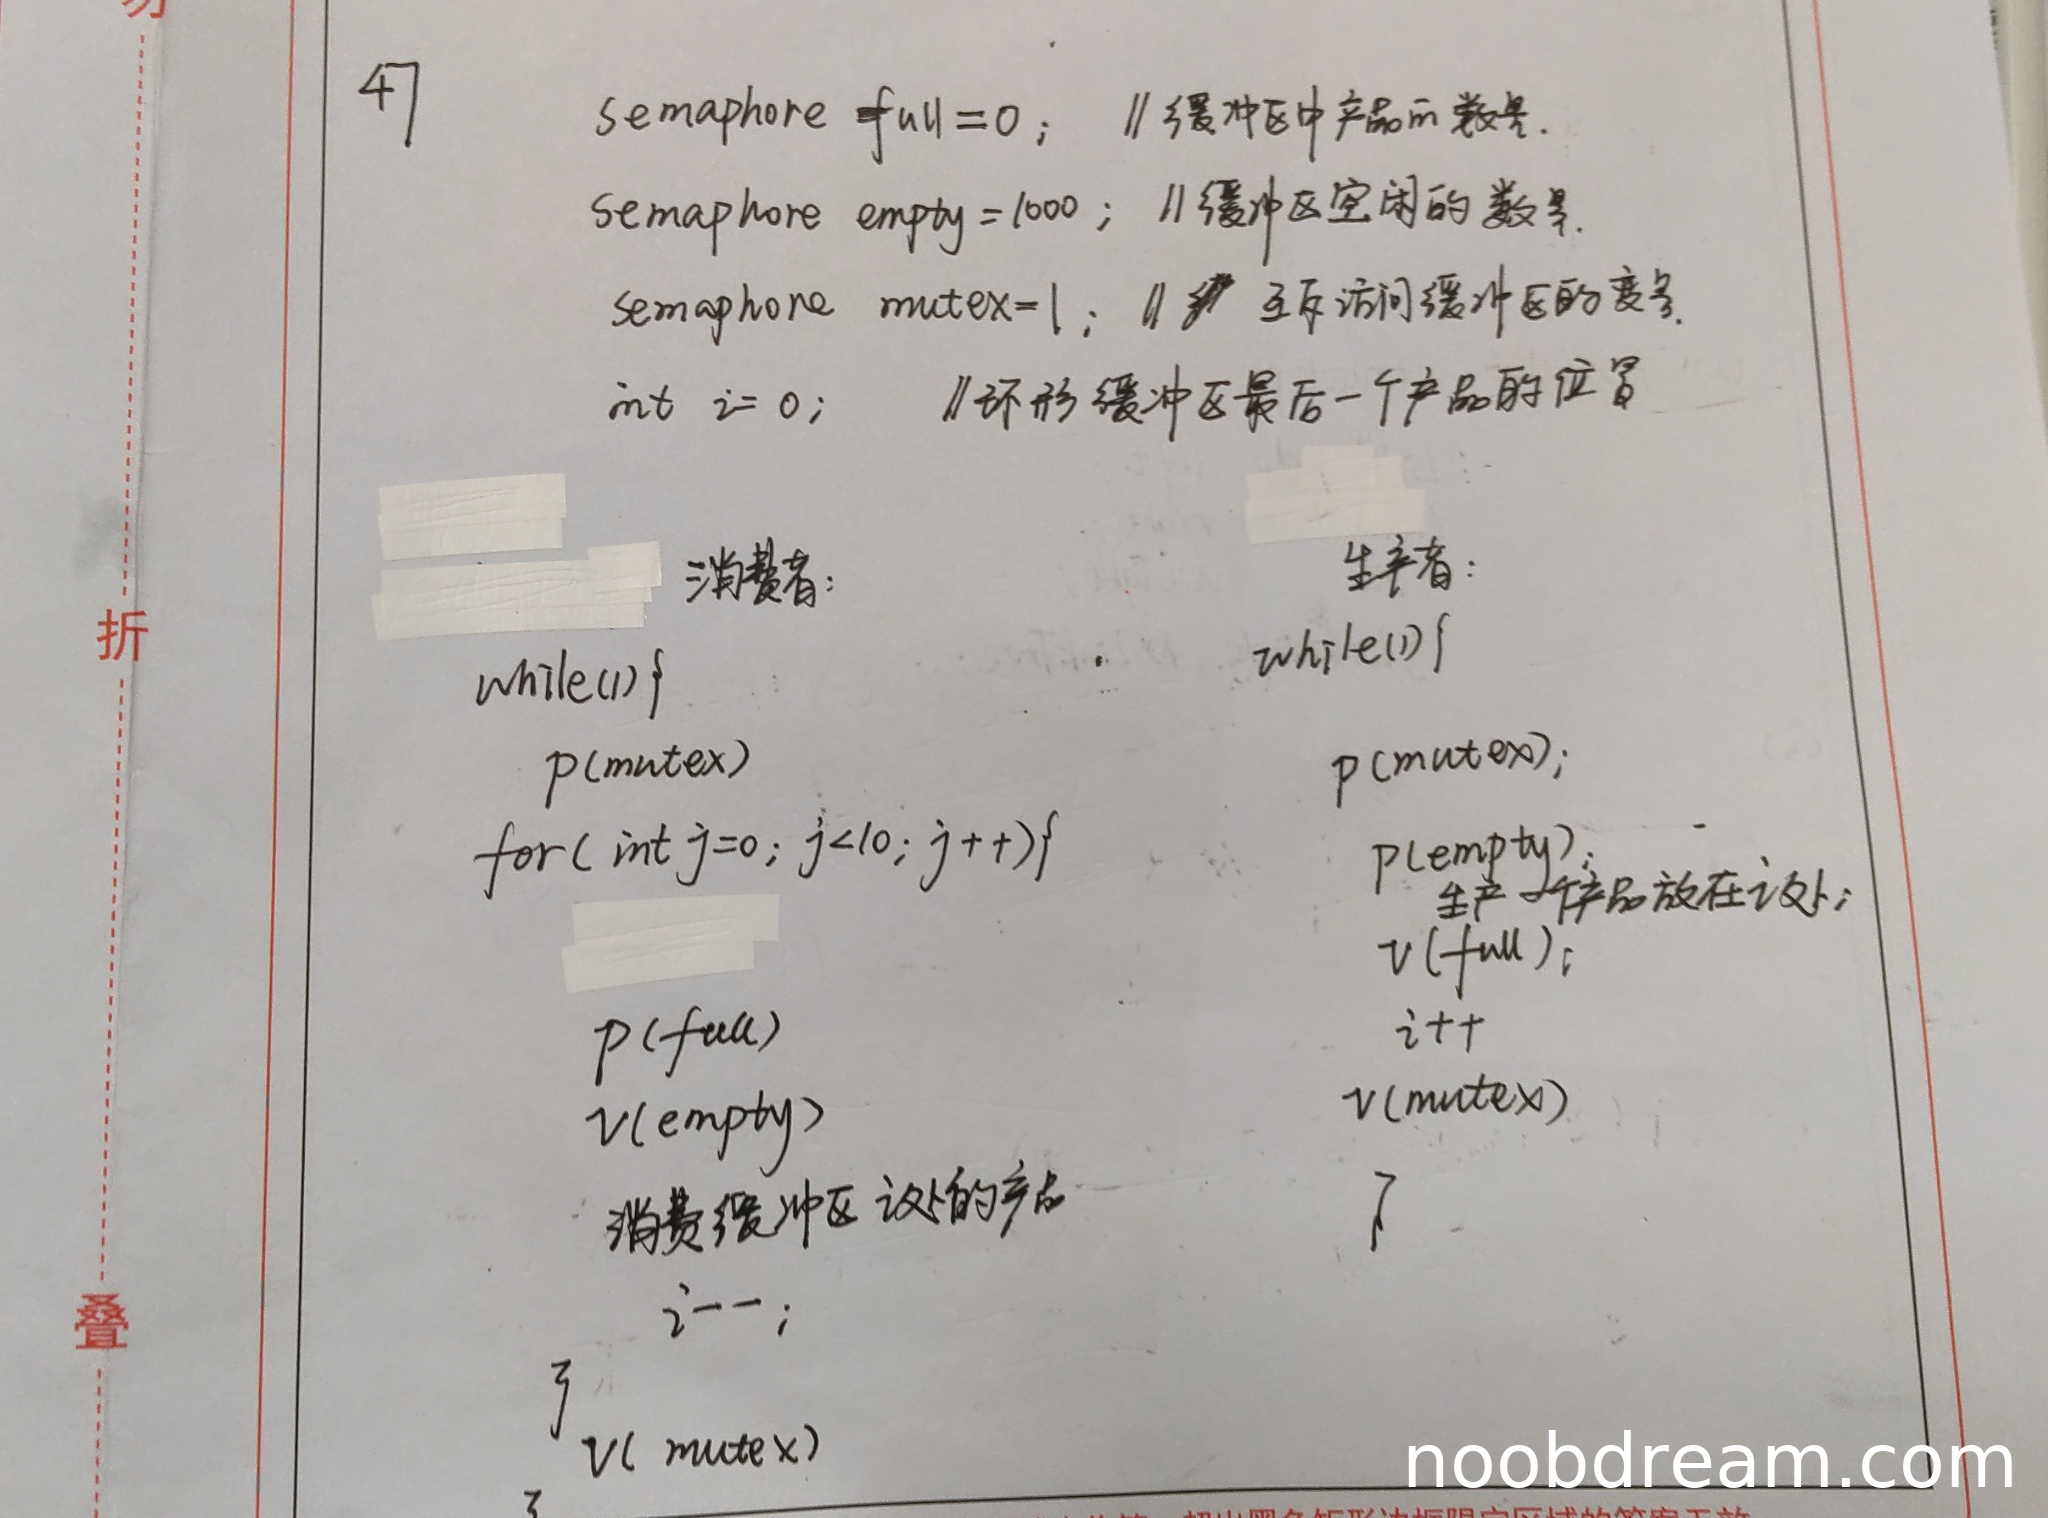 47
semaphore full=0; //缓冲区中产品的数量.
semaphore empty=1000; //缓冲区空闲的数量.
semaphore mutex=1; // 互斥访问缓冲区的变量.
int i=0; //环形缓冲区最后一个产品的位置
消费者:
while(1){
p(mutex)
for( int j=0; j<10; j++){
p(full)
v(empty)
消费缓冲区i处的产品
i--;
}
v( mutex)
}
生产者:
while(1){
p(mutex);
p(empty);
生产一个产品放在i处;
v(full);
i++
v(mutex)
}
折
叠
noobdream.com